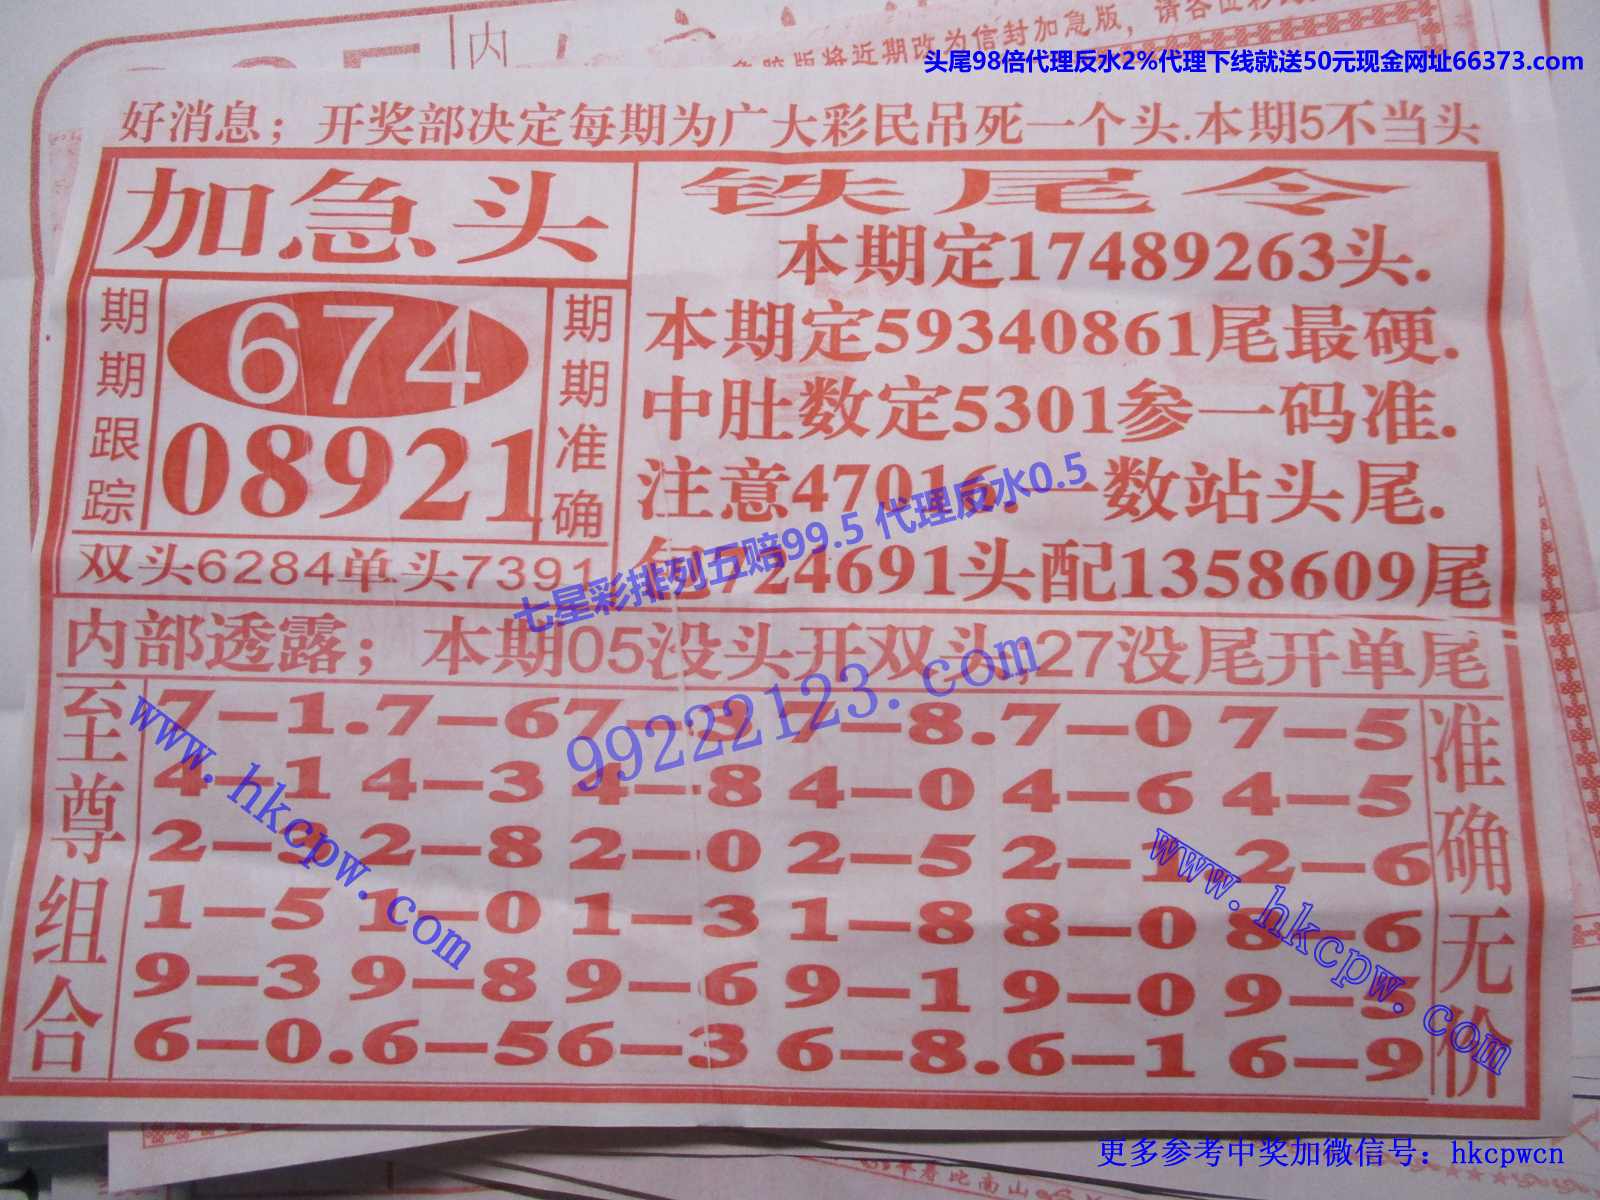 内
版将近期改为信封加急版，请各位彩
头尾98倍代理反水2%代理下线就送50元现金网址66373.com
好消息；开奖部决定每期为广大彩民吊死一个头.本期5不当头
加急头
期期跟踪
674
08921
期期准确
双头6284单头7391
铁尾令
本期定17489263头.
本期定59340861尾最硬.
中肚数定5301参一码准.
注意47016.一数站头尾.
包724691头配1358609尾
七星彩排列五赔99.5 代理反水0.5
内部透露；本期05没头开双头;27没尾开单尾
99222123.com
至尊组合
7—1.7—67—3 7—8.7—0 7—5
4—1 4—3 4—8 4—0 4—6 4—5
2—3 2—8 2—0 2—5 2—1 2—6
1—5 1—0 1—3 1—8 8—0 8—6
9—3 9—8 9—6 9—1 9—0 9—5
6—0.6—56—3 6—8.6—1 6—9
准确无价
www.hkcpw.com
www.hkcpw.com
更多参考中奖加微信号：hkcpwcn
寿比南山